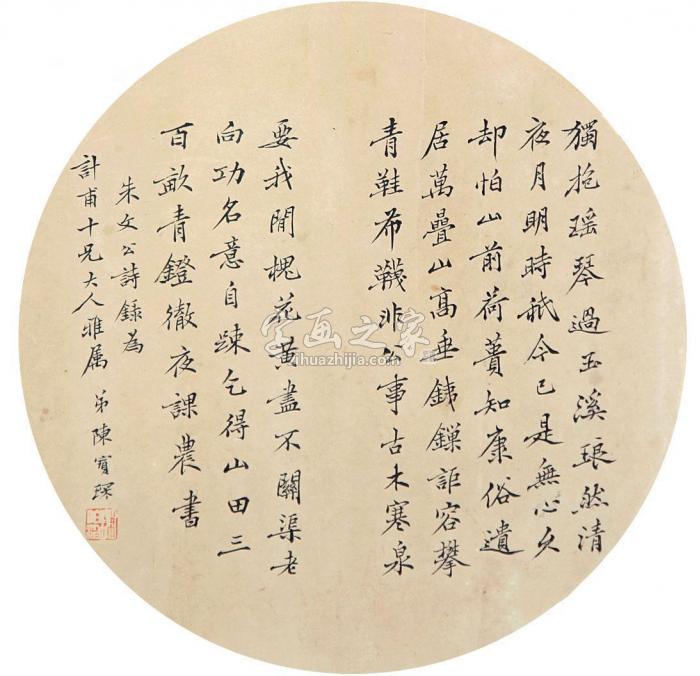 獨抱瑶琴過玉溪琅然清
夜月明時祇今已是無心久
却怕山前荷蕢知康俗遺
居萬疊山高垂鐵鏁詎容攀
青鞋布韈非公事古木寒泉
要我閒槐花黄盡不關渠老
向功名意自踈乞得山田三
百畝青鐙徹夜課農書
朱文公詩録為
計甫十兄大人雅属 弟陳寶琛
字画之家
zihuazhijia.com